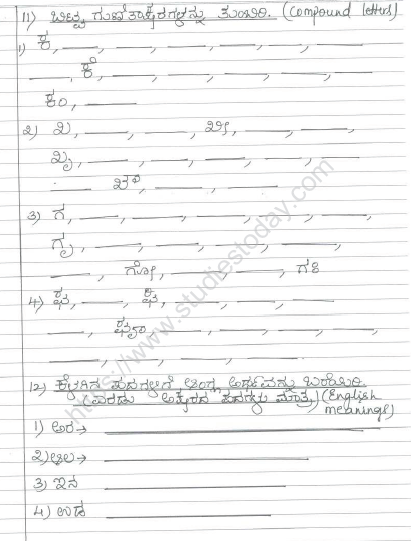 11) ಬಿಟ್ಟ ಗುಣಿತಾಕ್ಷರಗಳನ್ನು ತುಂಬಿರಿ. (Compound letters)
1) ಕ, ___, ___, ___, ___, ___, ___
___, ಕೆ, ___, ___, ___, ___, ___
ಕಂ, ___
2) ಖ, ___, ___, ಖೀ, ___, ___, ___
ಖೃ, ___, ___, ___, ___, ___
___ ಖೌ, ___, ___
3) ಗ, ___, ___, ___, ___, ___, ___
ಗೃ, ___, ___, ___, ___, ___
___, ಗೋ, ___, ___, ಗಃ
4) ಘ, ___, ಘಿ, ___, ___, ___
___, ಘೃ, ___, ___, ___, ___
___, ___, ___, ___
12) ಕೆಳಗಿನ ಪದಗಳಿಗೆ ಆಂಗ್ಲ ಅರ್ಥವನ್ನು ಬರೆಯಿರಿ.
(ಎರಡು ಅಕ್ಷರದ ಪದಗಳು ಮಾತ್ರ) (English
meanings)
1) ಅರ→ ___
2) ಆಲ→ ___
3) ಇನ ___
4) ಉಡ ___
https://www.studiestoday.com